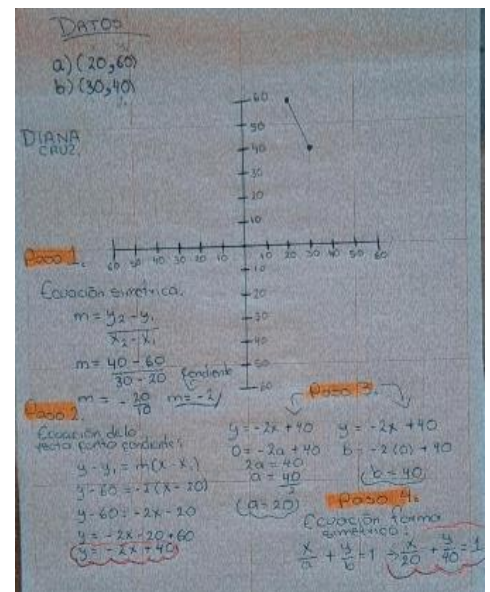 DATOS
a) (20,60)
b) (30,40)
DIANA
CRUZ.
60
50
40
30
20
10
60 50 40 30 20 10 10 20 30 40 50 60
10
20
30
40
50
60
Paso 1.
Ecuación simétrica.
m = y2 - y1
x2 - x1
m = 40 - 60
30 - 20
Pendiente
m = - 20 m = -2
10
Paso 2.
Ecuación de la
recta punto pendiente:
y - y1 = m(x - x1)
y - 60 = -2(x - 20)
y - 60 = -2x - 20
y = -2x - 20 + 60
y = -2x + 40
Paso 3.
y = -2x + 40
0 = -2a + 40
2a = 40
a = 40
2
(a = 20)
y = -2x + 40
b = -2(0) + 40
b = 40
Paso 4.
Ecuación forma
simétrica:
x/a + y/b = 1 → x/20 + y/40 = 1